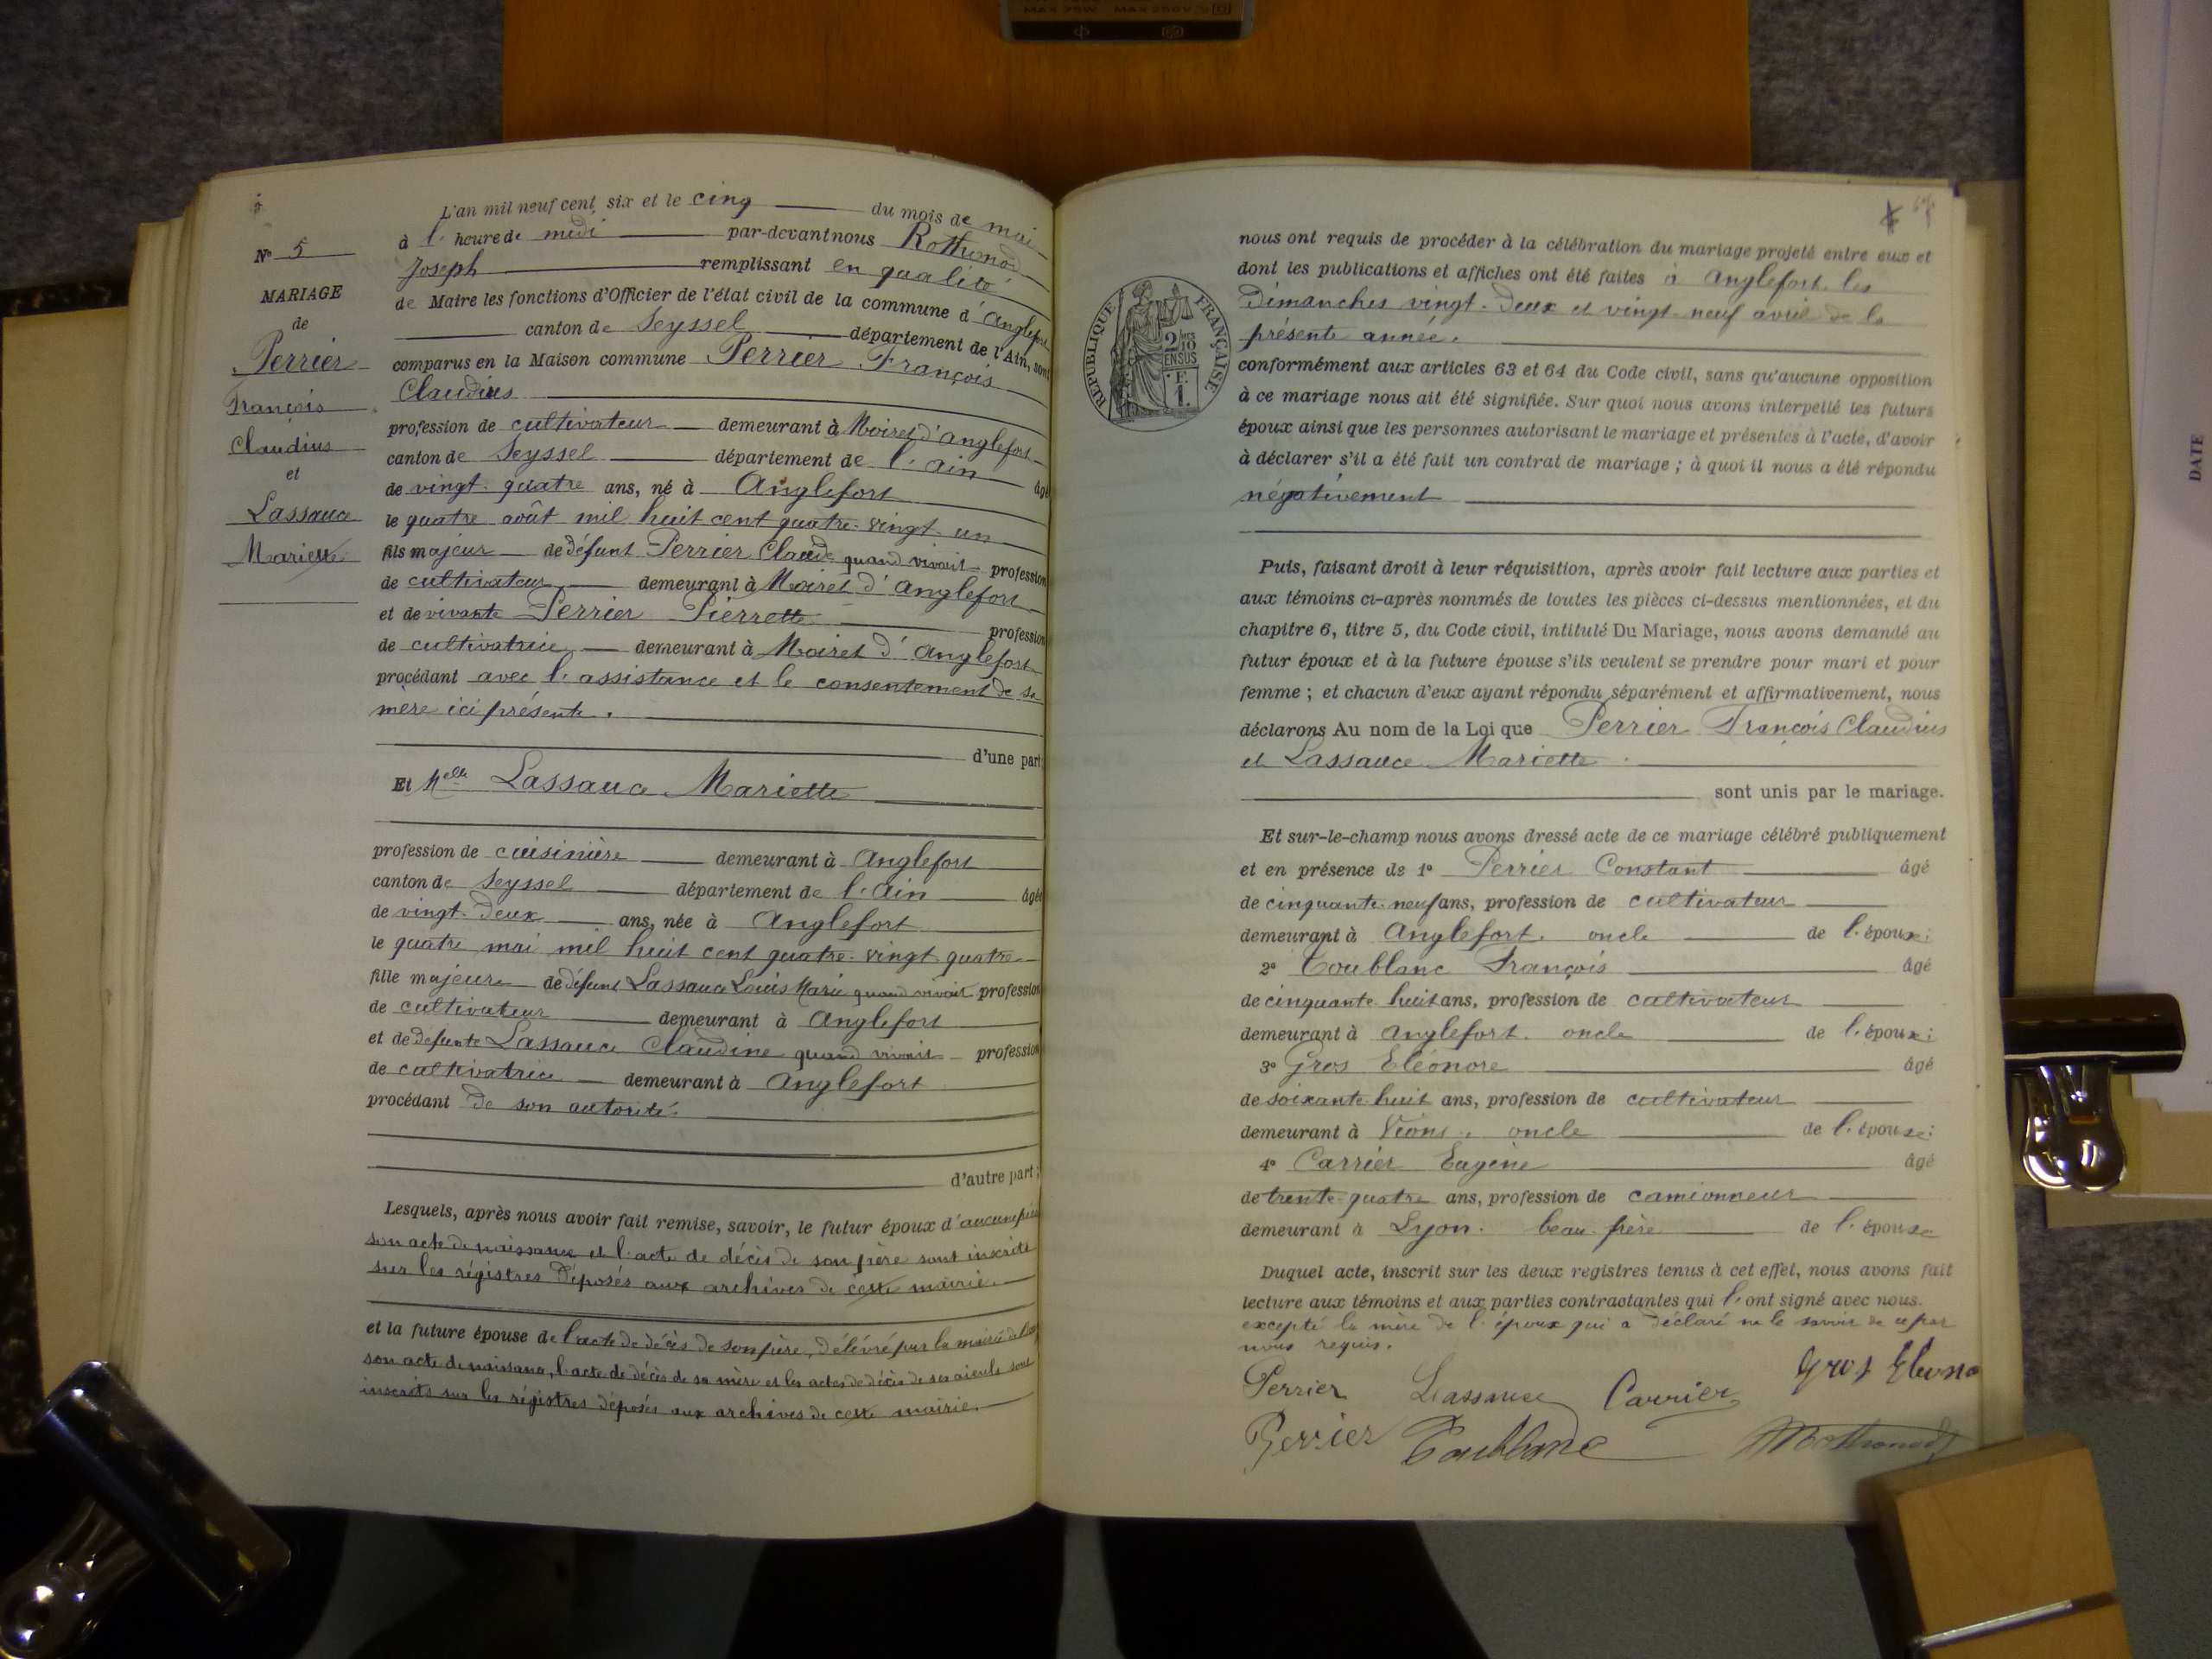 MAX 75W MAX 250V
N° 5
MARIAGE
de
Perrier
François
Claudius
et
Lassauce
Mariette
L'an mil neuf cent six et le cinq du mois de mai
à l'heure de midi par-devant nous Rothonod
Joseph remplissant en qualité
de Maire les fonctions d'Officier de l'état civil de la commune d'Anglefort
canton de Seyssel département de l'Ain, sont
comparus en la Maison commune Perrier François
Claudius
profession de cultivateur demeurant à Moiret d'Anglefort
canton de Seyssel département de l'Ain âgé
de vingt-quatre ans, né à Anglefort
le quatre août mil huit cent quatre-vingt-un
fils majeur de défunt Perrier Claude quand vivait profession
de cultivateur demeurant à Moiret d'Anglefort
et de vivante Perrier Pierrette profession
de cultivatrice demeurant à Moiret d'Anglefort
procédant avec l'assistance et le consentement de sa
mère ici présente.
d'une part
Et Melle Lassauce Mariette
profession de cuisinière demeurant à Anglefort
canton de Seyssel département de l'Ain âgée
de vingt-deux ans, née à Anglefort
le quatre mai mil huit cent quatre-vingt quatre
fille majeure de défunt Lassauce Louis Marie quand vivait profession
de cultivateur demeurant à Anglefort
et de défunte Lassauce Claudine quand vivait profession
de cultivatrice demeurant à Anglefort
procédant de son autorité.
d'autre part;
Lesquels, après nous avoir fait remise, savoir, le futur époux d'aucune pièce
son acte de naissance et l'acte de décès de son père sont inscrits
sur les régistres déposés aux archives de cette mairie.
et la future épouse de l'acte de décès de son père, délévré par la mairie de
son acte de naissance, l'acte de décès de sa mère et les actes de décès de ses aieuls sont
inscrits sur les régistres déposés aux archives de cette mairie.
RÉPUBLIQUE FRANÇAISE
2/10 EN SUS
1 F.
nous ont requis de procéder à la célébration du mariage projeté entre eux et
dont les publications et affiches ont été faites à Anglefort les
dimanches vingt-deux et vingt-neuf avril de la
présente année.
conformément aux articles 63 et 64 du Code civil, sans qu'aucune opposition
à ce mariage nous ait été signifiée. Sur quoi nous avons interpellé les futurs
époux ainsi que les personnes autorisant le mariage et présentes à l'acte, d'avoir
à déclarer s'il a été fait un contrat de mariage ; à quoi il nous a été répondu
négativement
Puis, faisant droit à leur réquisition, après avoir fait lecture aux parties et
aux témoins ci-après nommés de toutes les pièces ci-dessus mentionnées, et du
chapitre 6, titre 5, du Code civil, intitulé Du Mariage, nous avons demandé au
futur époux et à la future épouse s'ils veulent se prendre pour mari et pour
femme ; et chacun d'eux ayant répondu séparément et affirmativement, nous
déclarons Au nom de la Loi que Perrier François Claudius
et Lassauce Mariette
sont unis par le mariage.
Et sur-le-champ nous avons dressé acte de ce mariage célébré publiquement
et en présence de 1° Perrier Constant âgé
de cinquante-neuf ans, profession de cultivateur
demeurant à Anglefort. oncle de l'époux;
2° Toublanc François âgé
de cinquante huit ans, profession de cultivateur
demeurant à Anglefort. oncle de l'époux;
3° Gros Eléonore âgé
de soixante huit ans, profession de cultivateur
demeurant à Vions. oncle de l'épouse;
4° Carrier Eugène âgé
de trente-quatre ans, profession de camionneur
demeurant à Lyon. beau-frère de l'épouse
Duquel acte, inscrit sur les deux registres tenus à cet effet, nous avons fait
lecture aux témoins et aux parties contractantes qui l'ont signé avec nous.
excepté la mère de l'époux qui a déclaré ne le savoir de ce par
nous requis.
Perrier Lassauce Carrier Gros
Perrier Toublanc Rothonod
DATE